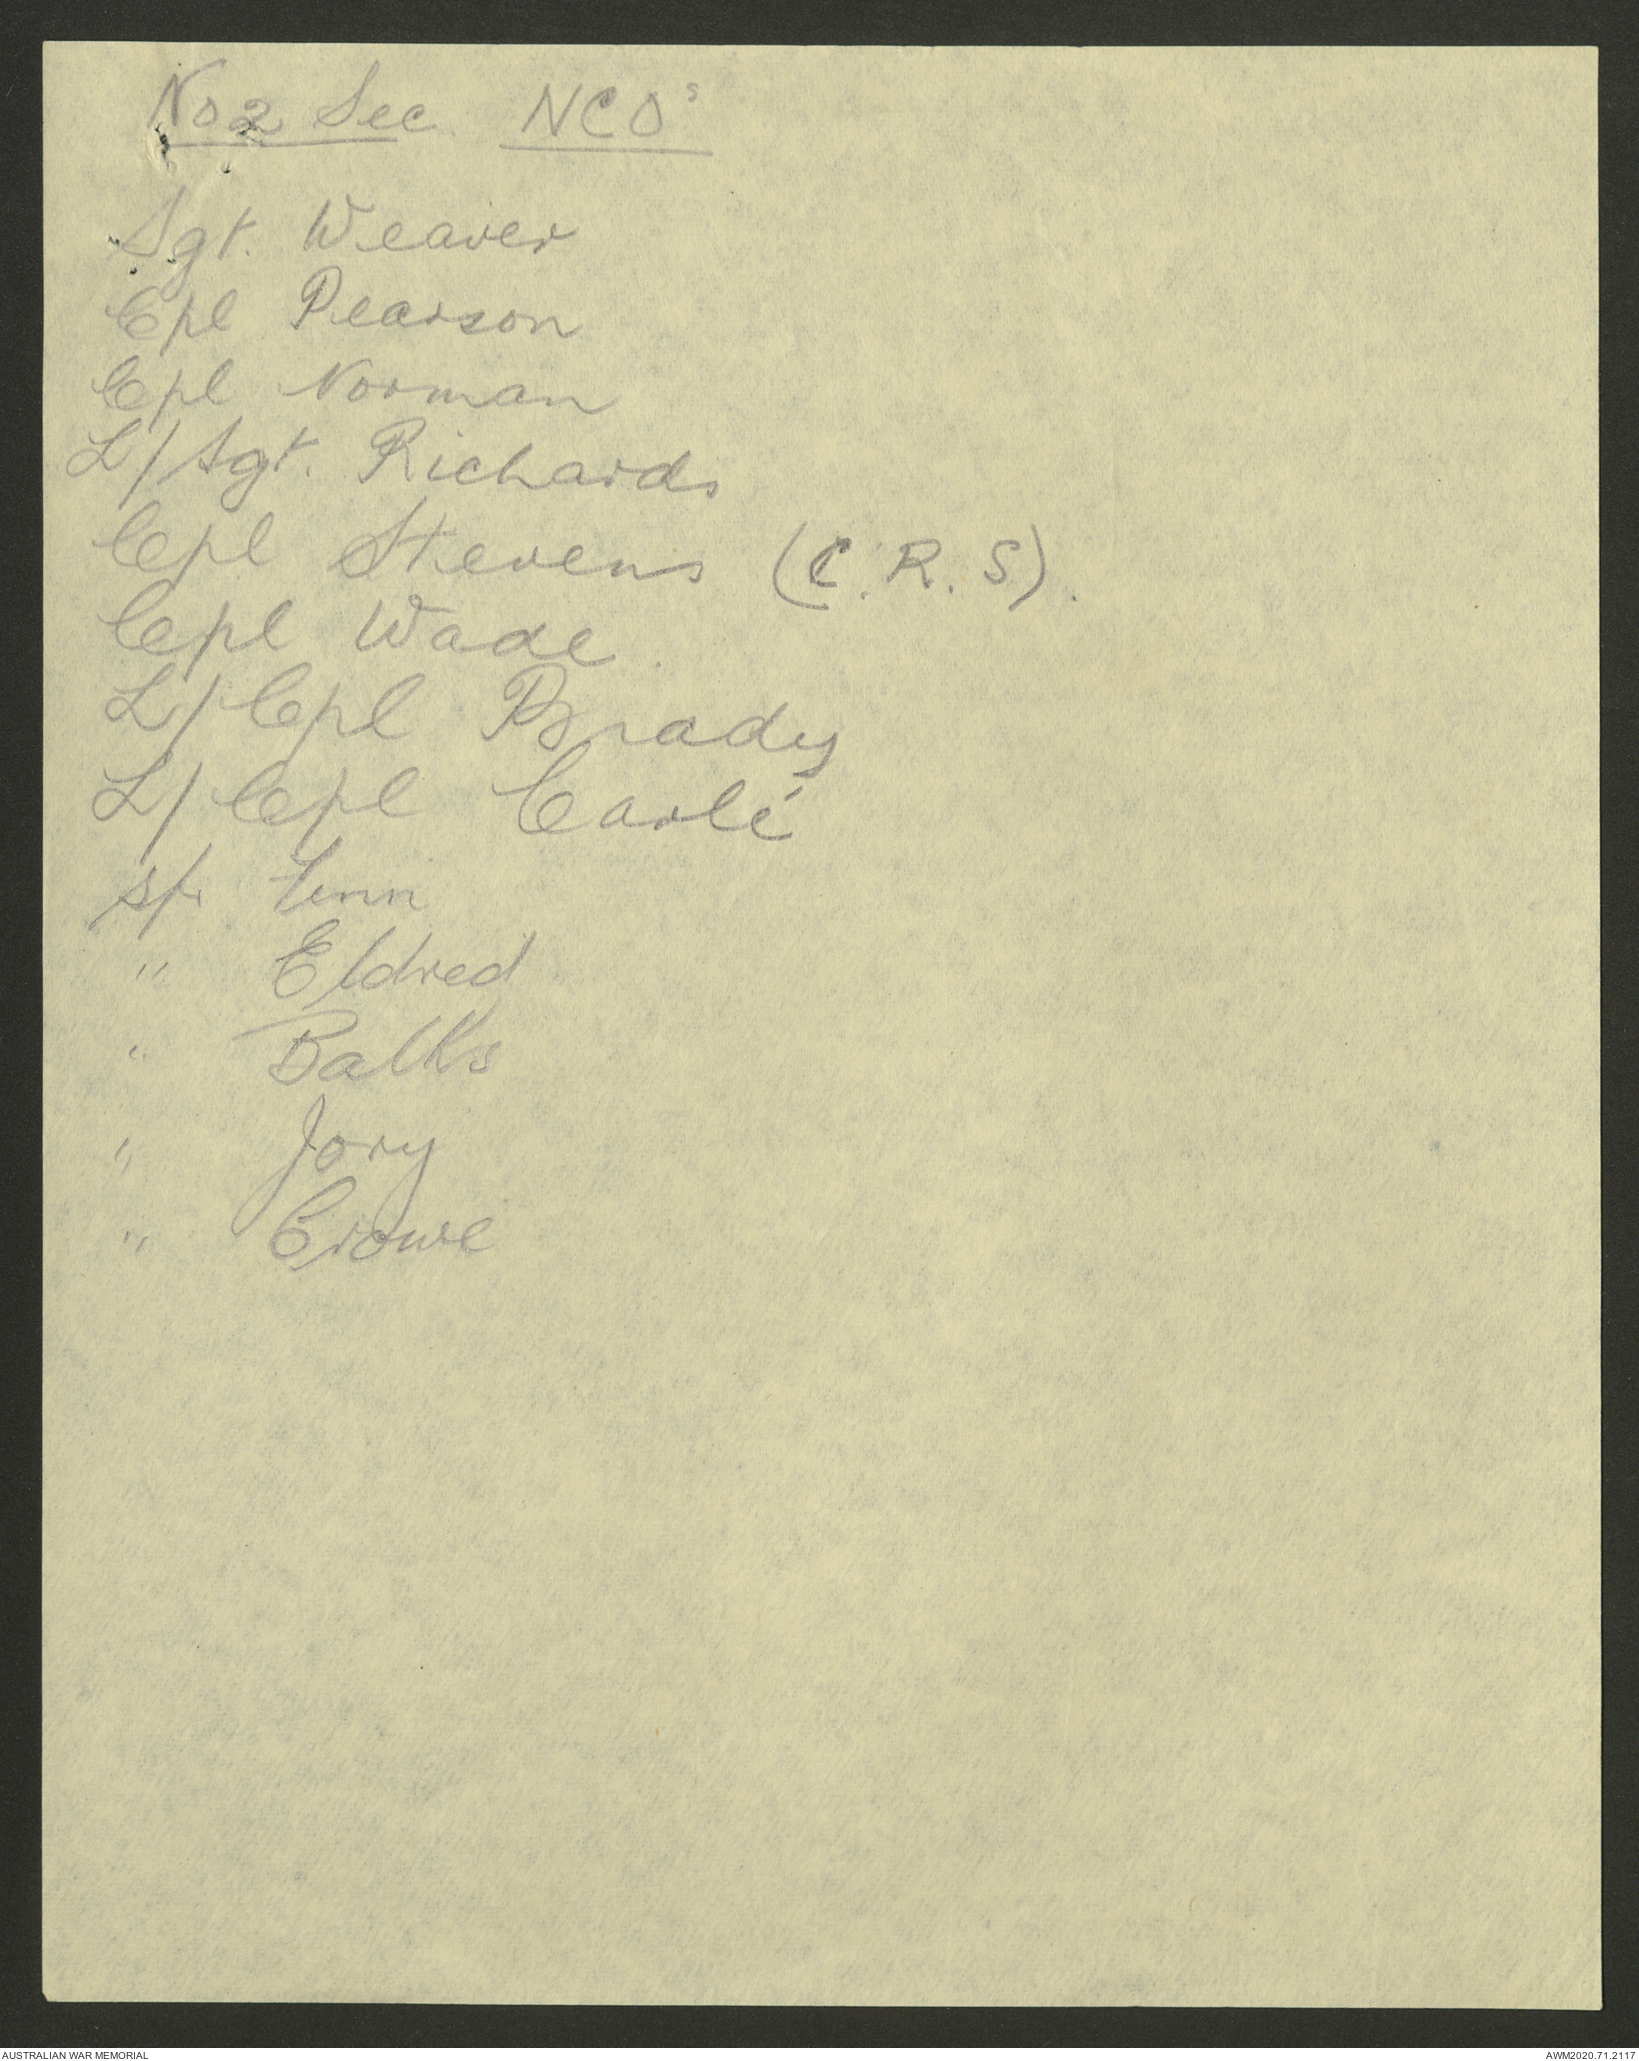 No 2 Sec. NCO's
Sgt. Weaver
Cpl Pearson
Cpl Norman
L/Sgt. Richards
Cpl Stevens (C.R.S).
Cpl Wade.
L/Cpl Brady
L/Cpl Carlé
Spr Fenn
" Eldred
" Balks
" Jory
" Crowe
AUSTRALIAN WAR MEMORIAL
AWM2020.71.2117